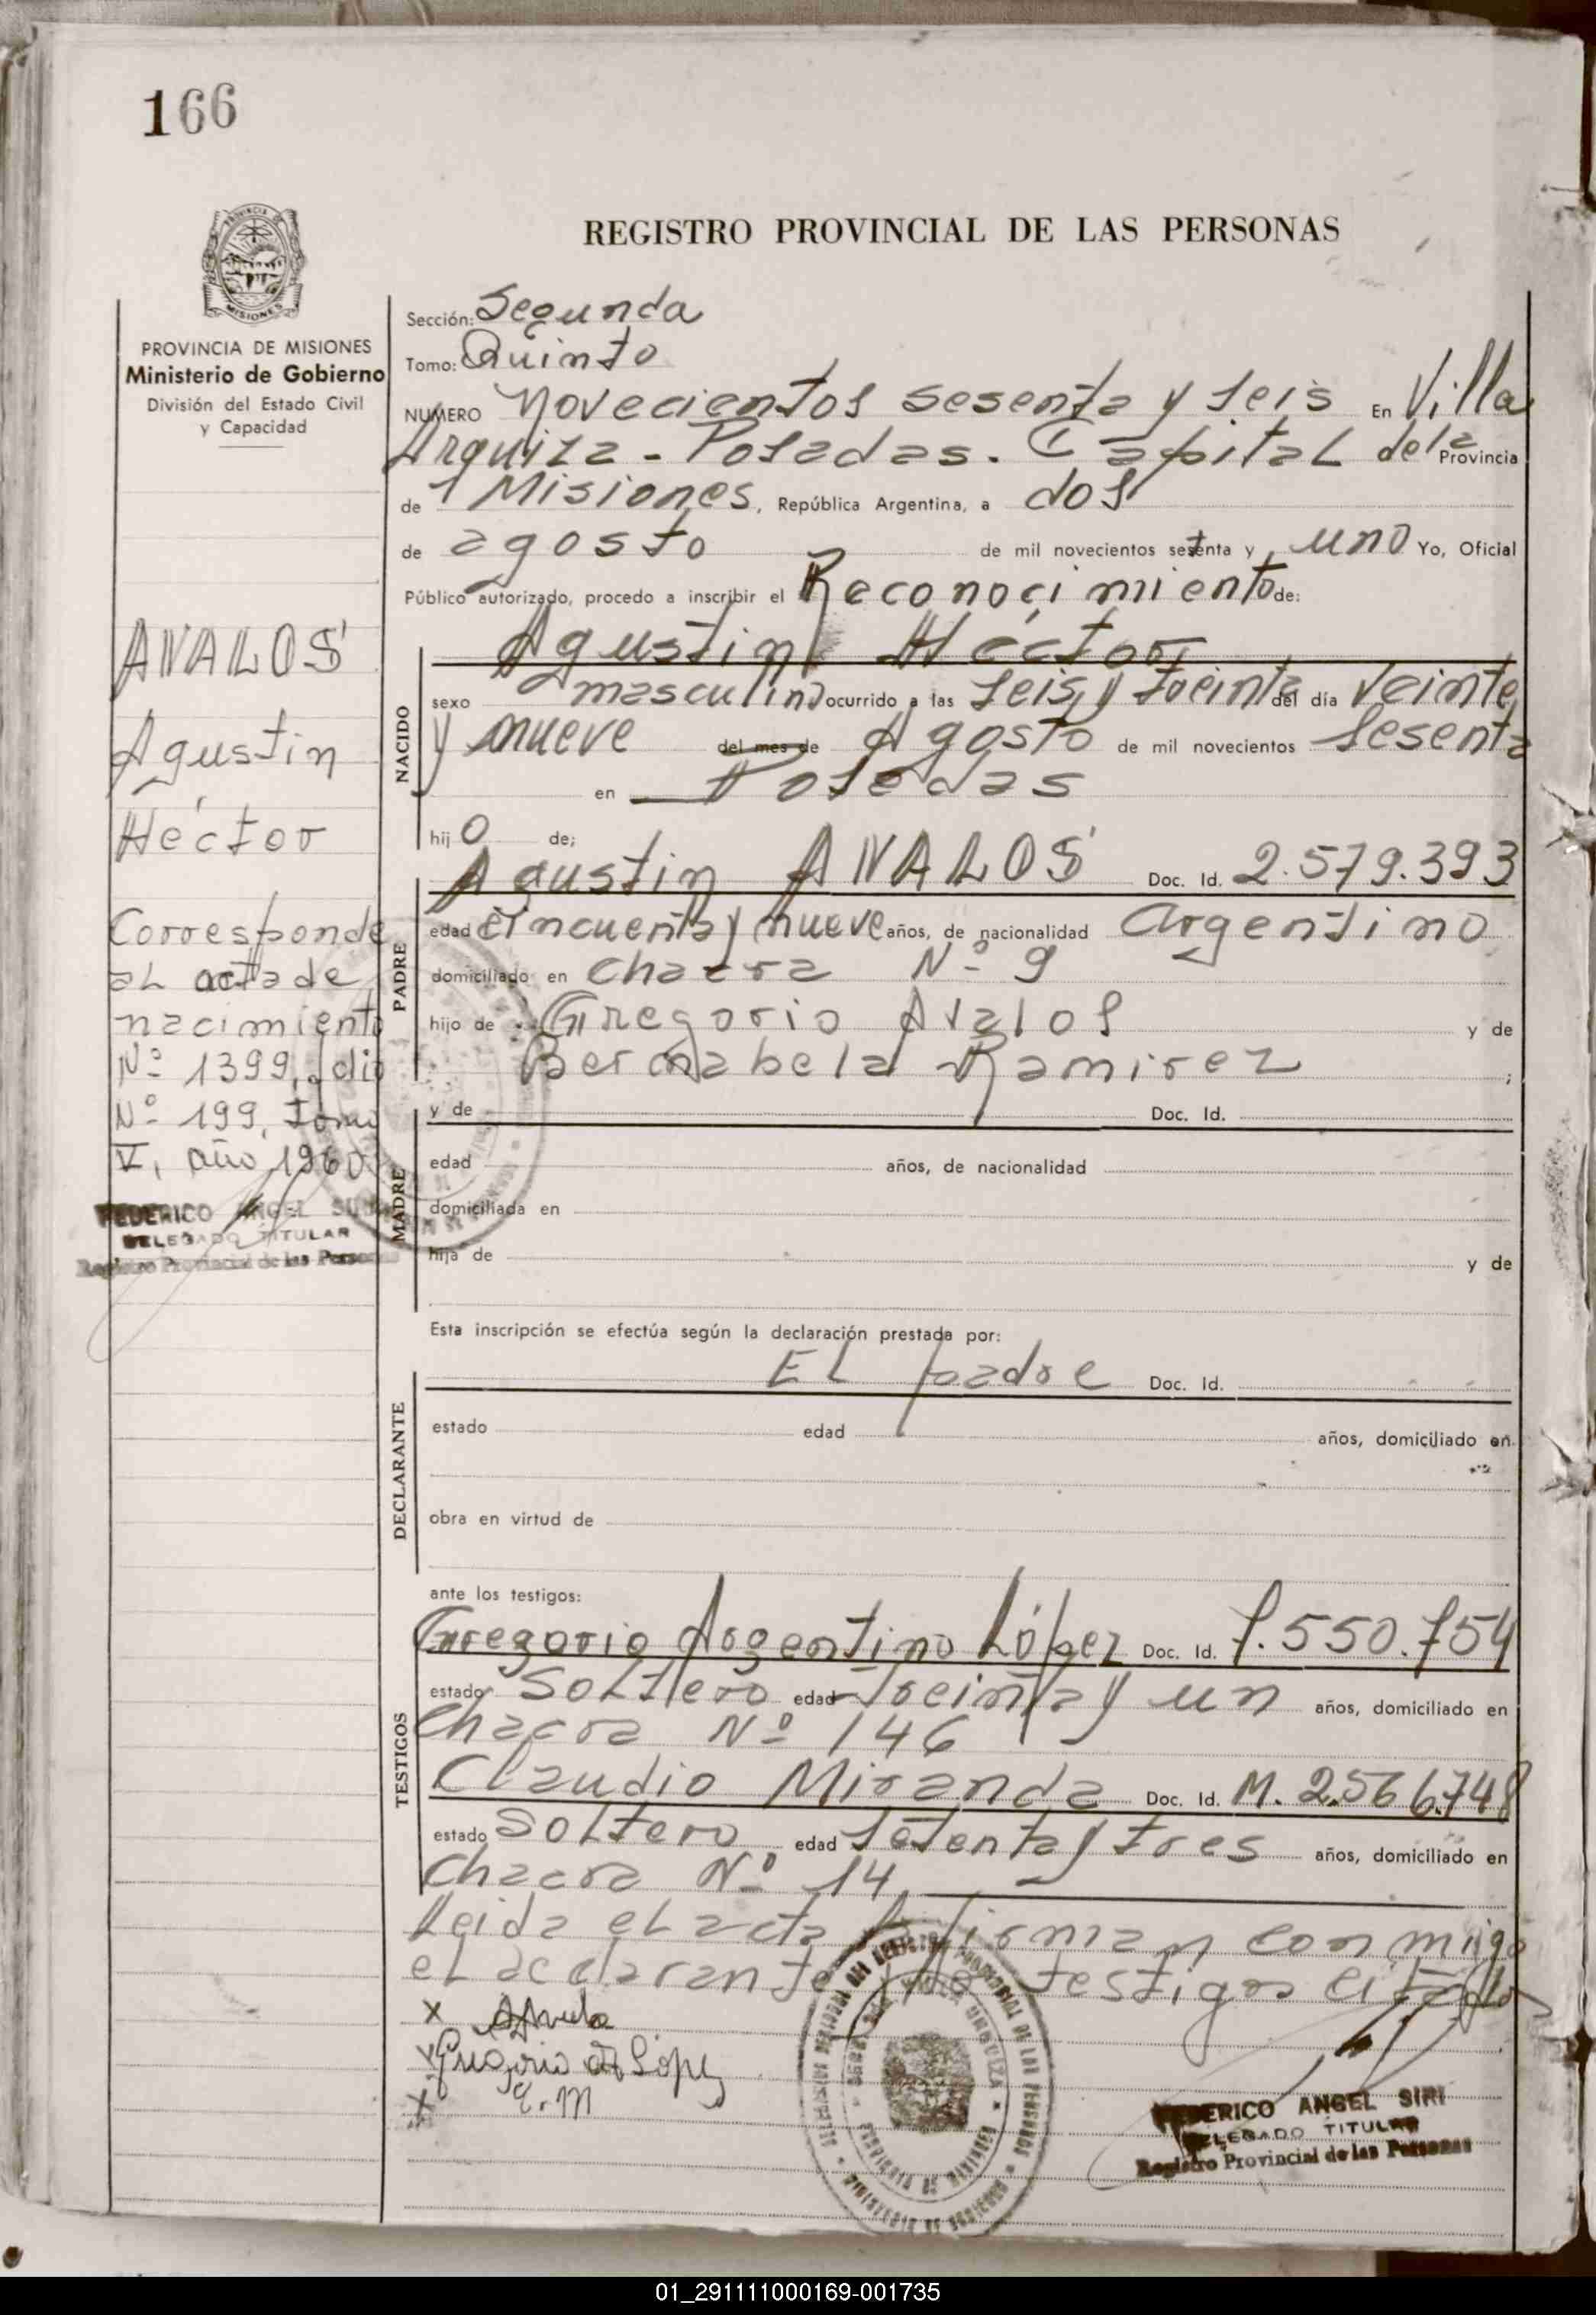 166
REGISTRO PROVINCIAL DE LAS PERSONAS
PROVINCIA DE MISIONES
Ministerio de Gobierno
División del Estado Civil
y Capacidad
Sección: Segunda
Tomo: Quinto
NUMERO Novecientos sesenta y seis En Villa
Urquiza - Posadas. Capital de la Provincia
de Misiones, República Argentina, a dos
de agosto de mil novecientos setenta y uno Yo, Oficial
Público autorizado, procedo a inscribir el Reconocimiento de:
AVALOS
Agustin
Héctor
Corresponde
al acta de
nacimiento
Nº 1399, folio
Nº 199, Tomo
V, año 1960
FEDERICO ANGEL SIRI
DELEGADO TITULAR
Registro Provincial de las Personas
NACIDO
Agustin Héctor
sexo masculino ocurrido a las seis y treinta del día veinte
y nueve del mes de Agosto de mil novecientos sesenta
en Posadas
hijo de;
PADRE
Agustin AVALOS Doc. Id. 2.579.393
edad cincuenta y nueve años, de nacionalidad argentino
domiciliado en chacra Nº 9
hijo de Gregorio Avalos y de
Bernabela Ramirez ;
MADRE
y de Doc. Id.
edad años, de nacionalidad
domiciliada en
hija de y de
Esta inscripción se efectúa según la declaración prestada por:
DECLARANTE
El padre Doc. Id.
estado edad años, domiciliado en
obra en virtud de
ante los testigos:
TESTIGOS
Gregorio Argentino López Doc. Id. 7.550.754
estado soltero edad Treinta y un años, domiciliado en
chacra Nº 146
Claudio Miranda Doc. Id. M. 2.566.748
estado soltero edad setenta y tres años, domiciliado en
chacra Nº 14
Leida el acta firman conmigo
el declarante y los testigos citados
x
x Gregorio López
x C. M
FEDERICO ANGEL SIRI
DELEGADO TITULAR
Registro Provincial de las Personas
01_291111000169-001735